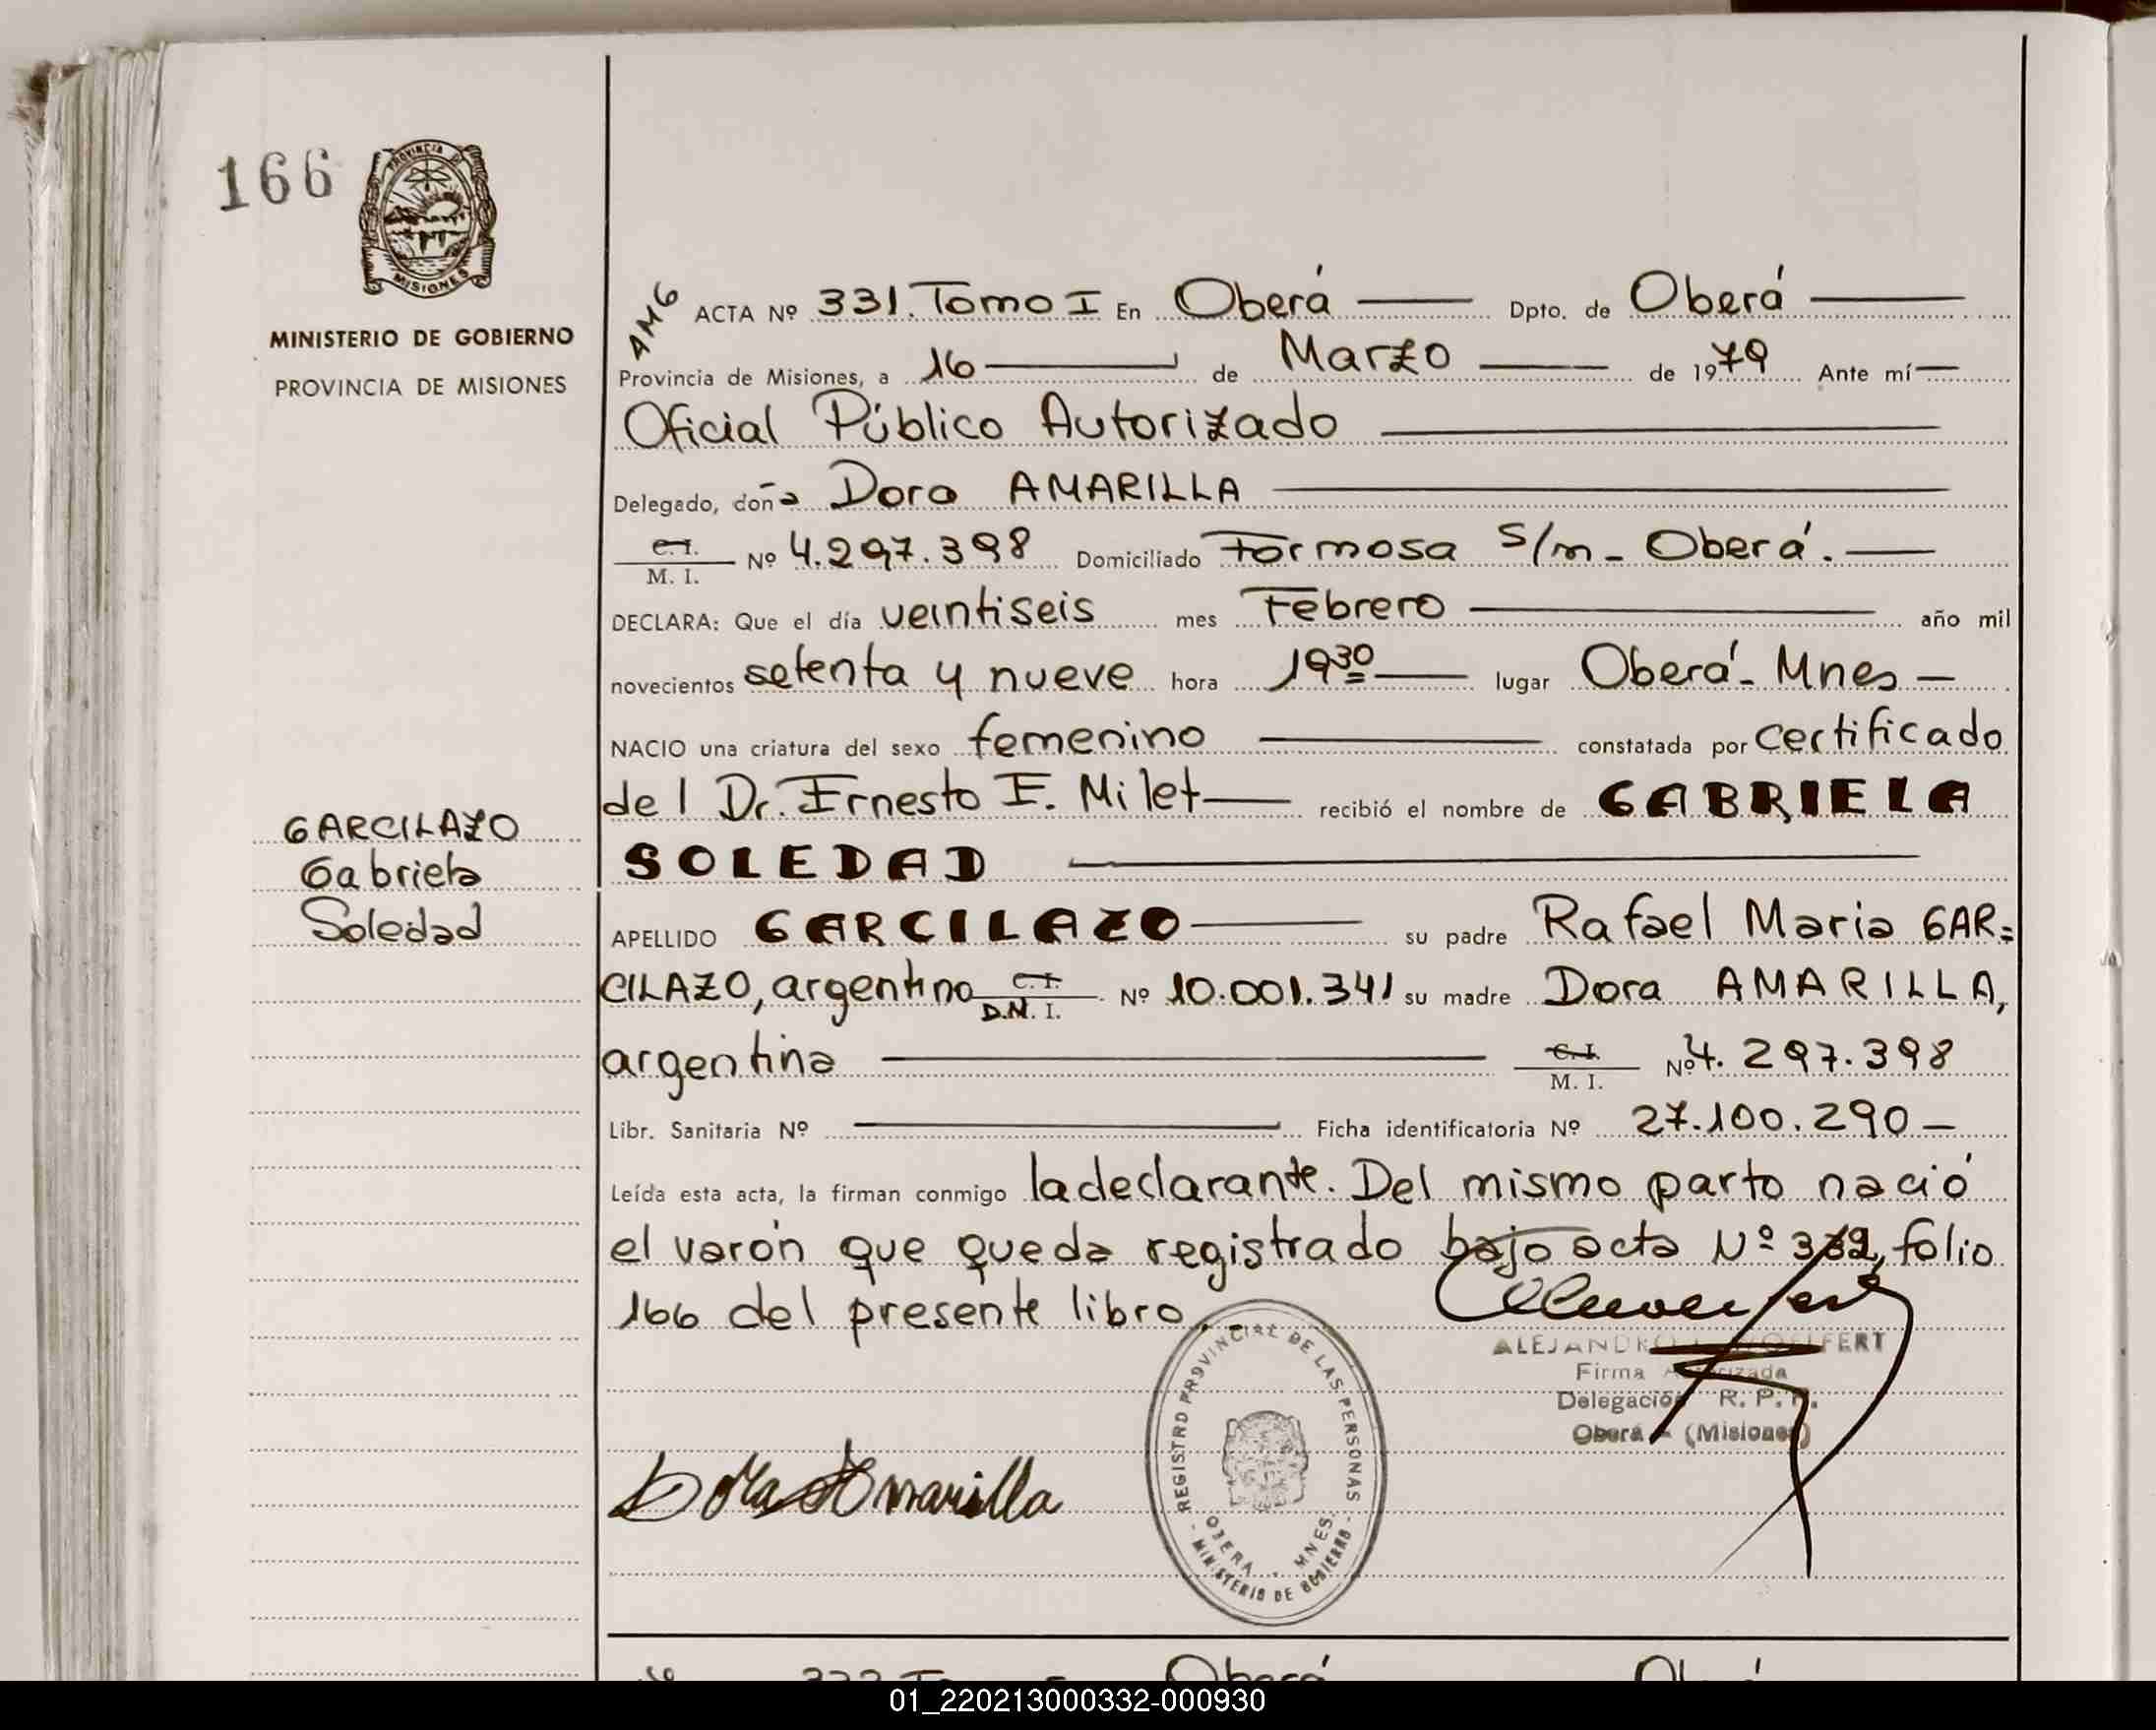 166
PROVINCIA DE
MISIONES
MINISTERIO DE GOBIERNO
PROVINCIA DE MISIONES
GARCILAZO
Gabriela
Soledad
AMG
ACTA Nº 331. Tomo I En Oberá Dpto. de Oberá
Provincia de Misiones, a 16 de Marzo de 1979 Ante mí
Oficial Público Autorizado
Delegado, doña Dora AMARILLA
C. I.
M. I. Nº 4.297.398 Domiciliado Formosa s/m - Oberá.
DECLARA: Que el día veintiseis mes Febrero año mil
novecientos setenta y nueve hora 19 30 lugar Oberá - Mnes -
NACIO una criatura del sexo femenino constatada por certificado
del Dr. Ernesto E. Milet recibió el nombre de GABRIELA
SOLEDAD
APELLIDO GARCILAZO su padre Rafael Maria GAR=
CILAZO, argentino C. I.
D.N. I. Nº 10.001.341 su madre Dora AMARILLA,
argentina C. I.
M. I. Nº 4.297.398
Libr. Sanitaria Nº Ficha identificatoria Nº 27.100.290 -
Leída esta acta, la firman conmigo la declarante. Del mismo parto nació
el varón que queda registrado bajo acta Nº 332, folio
166 del presente libro.
ALEJANDRO WOLFERT
Firma Autorizada
Delegación R. P. P.
Oberá - (Misiones)
Dora Amarilla
REGISTRO PROVINCIAL DE LAS PERSONAS
OBERA - MNES.
- MINISTERIO DE GOBIERNO -
Oberá
01_220213000332-000930